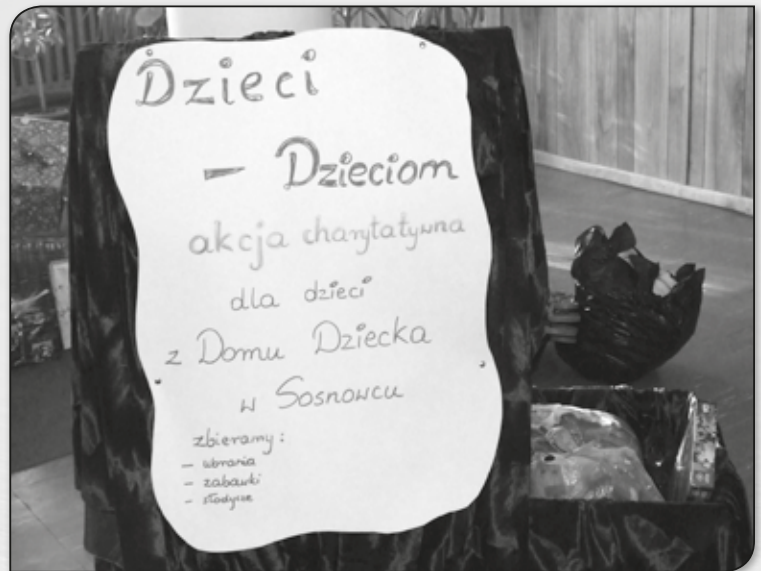 Dzieci
– Dzieciom
akcja charytatywna
dla dzieci
z Domu Dziecka
w Sosnowcu
zbieramy:
– ubrania
– zabawki
– słodycze